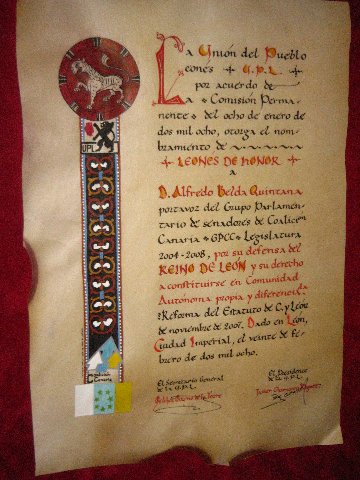 La Unión del Pueblo
Leonés U.P.L.
por acuerdo de
La Comisión Perma-
nente del ocho de enero de
dos mil ocho, otorga el nom-
bramiento de
LEONES DE HONOR
A
D. Alfredo Belda Quintana
portavoz del Grupo Parlamen-
tario de senadores de Coalición
Canaria GPCC Legislatura
2004-2008, por su defensa del
REINO DE LEÓN y su derecho
a constituirse en Comunidad
Autónoma propia y diferenciada
Reforma del Estatuto de C. y León
de noviembre de 2007. Dado en León,
Ciudad Imperial, el veinte de fe-
brero de dos mil ocho.
El Secretario General
de la U.P.L.
El Presidente
de la U.P.L.
UPL
Coalición
Canaria